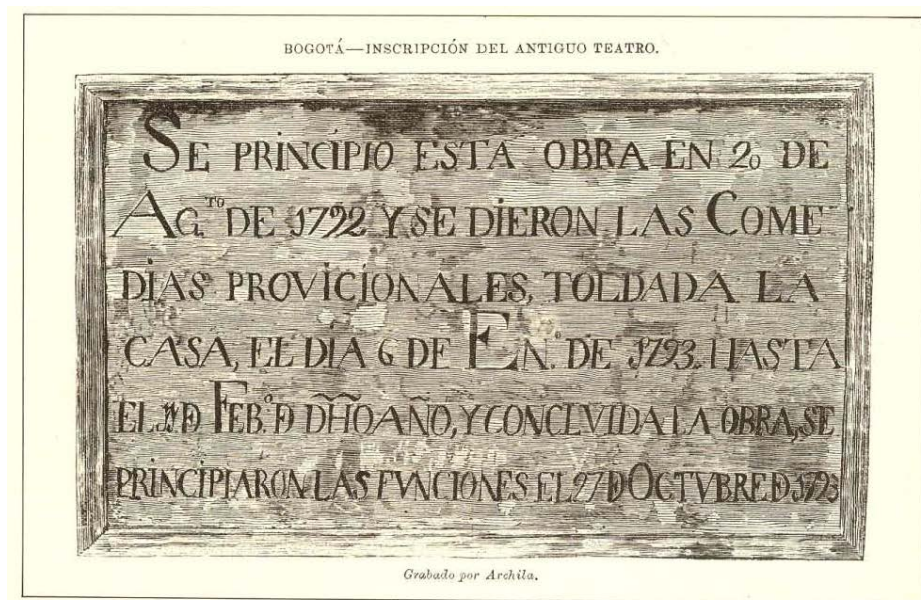 BOGOTÁ—INSCRIPCIÓN DEL ANTIGUO TEATRO.
SE PRINCIPIO ESTA OBRA EN 20 DE
AG.TO DE 1792 Y SE DIERON LAS COME
DIAS PROVICIONALES, TOLDADA LA
CASA, EL DIA 6 DE EN.o DE 1793. HASTA
EL D FEB.o D DHO AÑO, Y CONCLVIDA LA OBRA, SE
PRINCIPIARON LAS FVNCIONES EL 27 D OCTVBRE D 1793
Grabado por Archila.